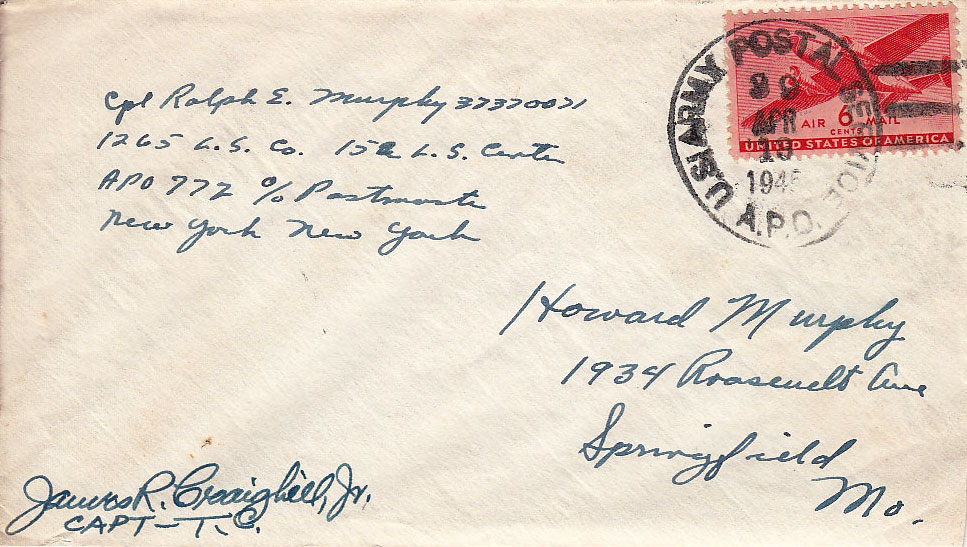 Cpl Ralph E. Murphy 37370071
1265 L.S. Co. L.S. Center
APO 772 c/o Postmaster
New York New York
U.S. ARMY POSTAL SERVICE
APR
13
1945
A.P.O.
AIR 6 MAIL
CENTS
UNITED STATES OF AMERICA
Howard Murphy
1934 Roosevelt Ave
Springfield
Mo.
James R. Craighill, Jr.
CAPT-T.C.